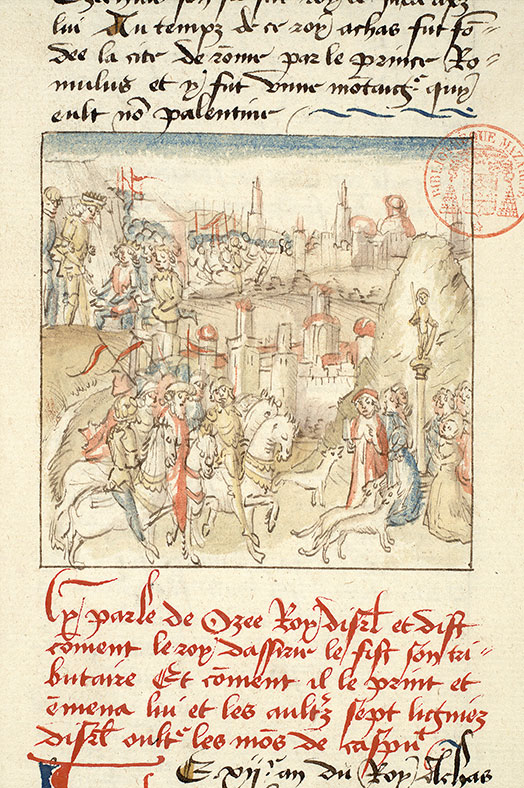 lui Au temps de ce roy achas fut fon
dee la cite de romme par le prince Ro=
mulus et y fut vnne motaigᵉ quy
eult nõ palentine
BIBLIOTHEQUE MAZARINE
Cy parle de Ozee Roy disrl et dist
cõment le roy dassirie le fist son tri=
butaire Et cõment il le print et
ẽmena lui et les aultz sept lignies
disrl oultᵉ les mõs de caspie
E xijᵉ an du Roy Achas